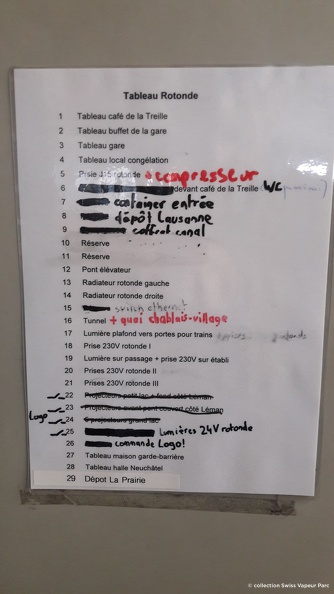 Tableau Rotonde
1 Tableau café de la Treille
2 Tableau buffet de la gare
3 Tableau gare
4 Tableau local congélation
5 Prise J15 rotonde + compresseur
6 devant café de la Treille W/C
7 container entrée
8 dépôt Lausanne
9 coffret canal
10 Réserve
11 Réserve
12 Pont élévateur
13 Radiateur rotonde gauche
14 Radiateur rotonde droite
15 switch ethernet
16 Tunnel + quai chablais-village
17 Lumière plafond vers portes pour trains
18 Prise 230V rotonde I
19 Lumière sur passage + prise 230V sur établi
20 Prises 230V rotonde II
21 Prises 230V rotonde III
22 Projecteurs petit lac + fond côté Léman
23 Projecteurs avant pont couvert côté Léman
Logo 24 projecteurs grand lac
25 Lumières 24V rotonde
26 commande Logo!
27 Tableau maison garde-barrière
28 Tableau halle Neuchâtel
29 Dépot La Prairie
© collection Swiss Vapeur Parc